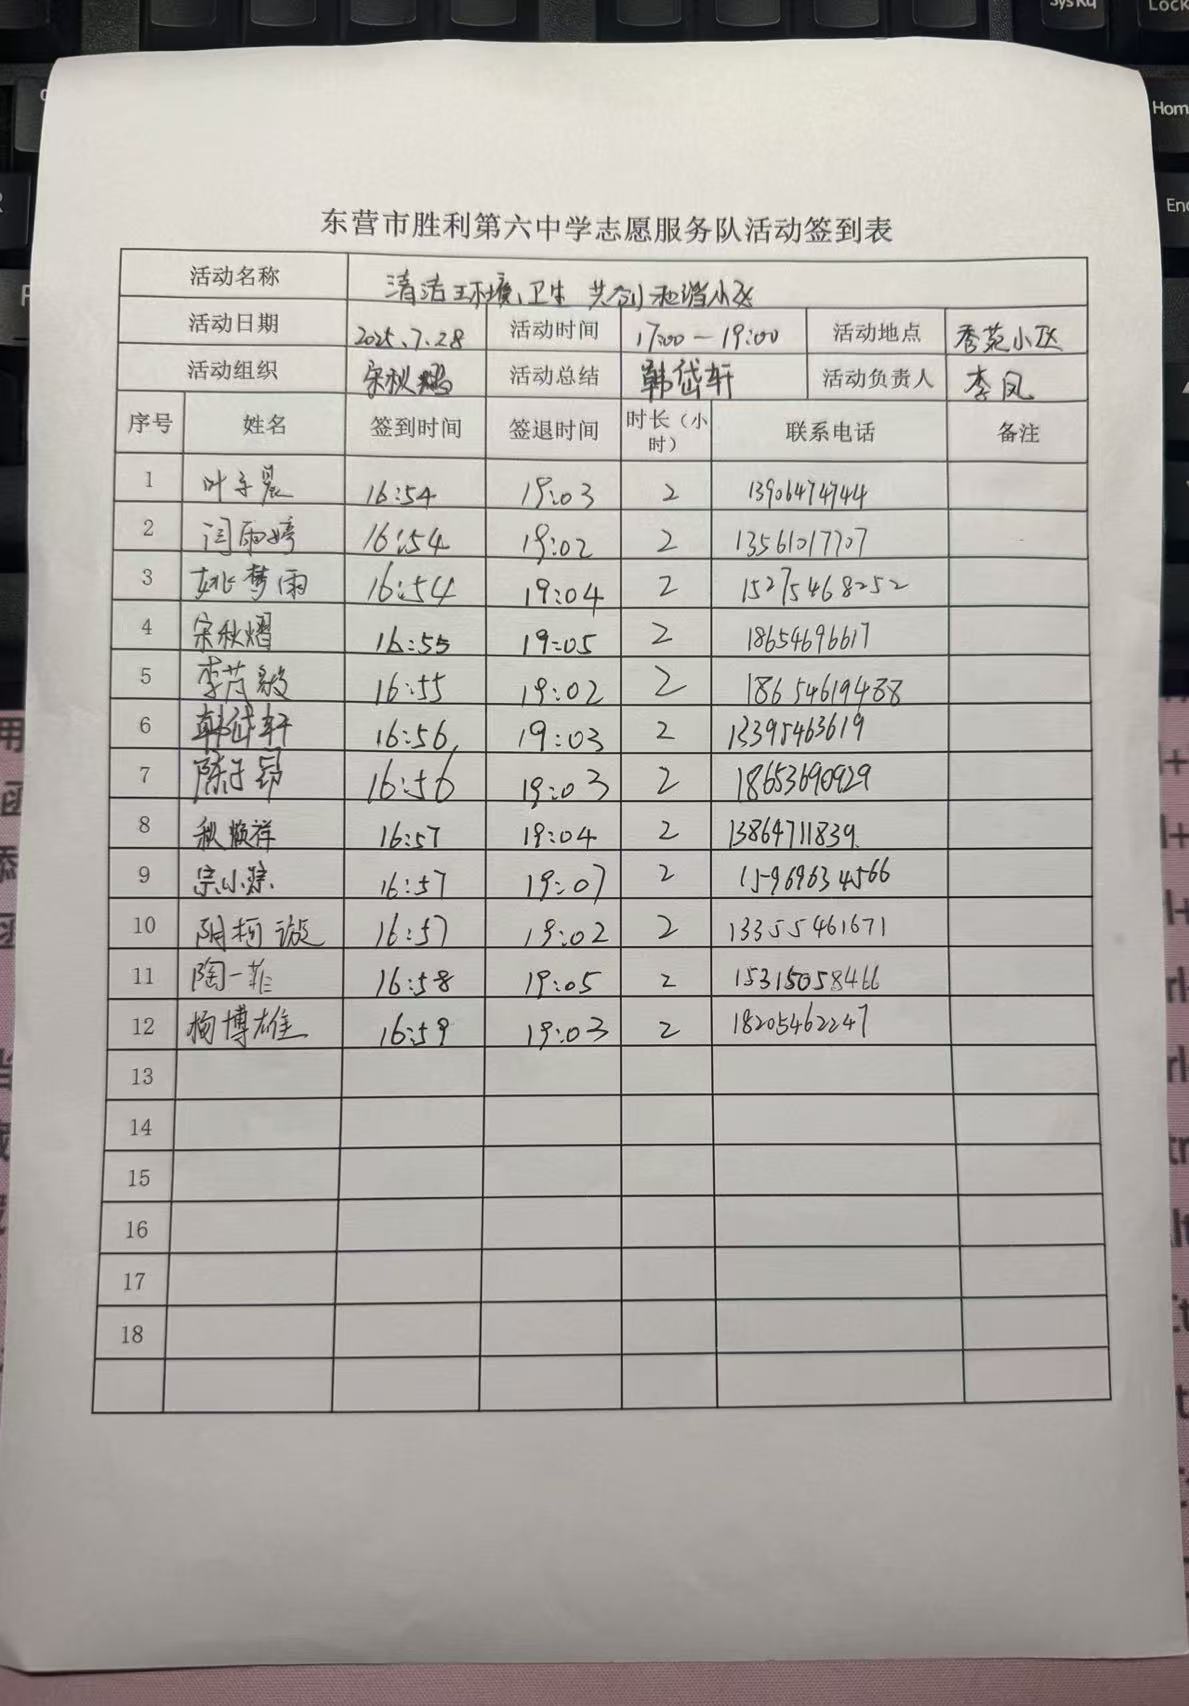 东营市胜利第六中学志愿服务队活动签到表
活动名称 清洁环境卫生 共创和谐小区
活动日期 2025.7.28 活动时间 17:00—19:00 活动地点 秀苑小区
活动组织 宋秋熠 活动总结 韩岱轩 活动负责人 李凤
序号 姓名 签到时间 签退时间 时长(小时) 联系电话 备注
1 叶子晨 16:54 19:03 2 13906474744
2 闫雨婷 16:54 19:02 2 13561017707
3 姚梦雨 16:54 19:04 2 15275468252
4 宋秋熠 16:55 19:05 2 18654696617
5 李芮毅 16:55 19:02 2 18654619488
6 韩岱轩 16:56 19:03 2 13395463619
7 陈子昂 16:56 19:03 2 18653690929
8 秋顺祥 16:57 19:04 2 13864711839
9 宗小 16:57 19:07 2 15969634566
10 柯璇 16:57 19:02 2 13355461671
11 陶一菲 16:58 19:05 2 15315058466
12 杨博雄 16:59 19:03 2 18205462247
13
14
15
16
17
18
SysRq
Lock
Home
End